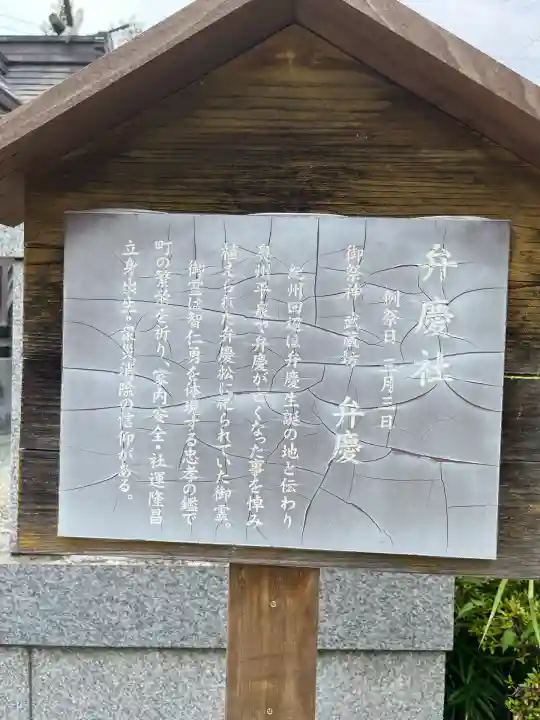 弁慶社
例祭日 三月三日
御祭神 武蔵坊 弁慶
紀州田辺は弁慶生誕の地と伝わり
奥州平泉で弁慶が亡くなった事を悼み
植えられた弁慶松に祀られていた御霊。
御霊は智仁勇を体現する忠孝の鑑で
町の繁栄を祈り、家内安全・社運隆昌
立身出世・災難消除の信仰がある。